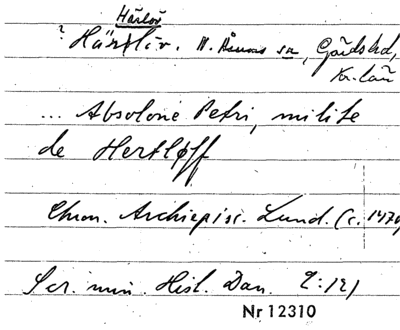 Härlöv
? Härlöv. N. Åsums sn, Gärds hd,
Kr. län
... Absolone Petri, milite
de Hertløff
Chron. Archiepisc. Lund. (c. 1470
Scr. min. Hist. Dan. 2:121
Nr 12310